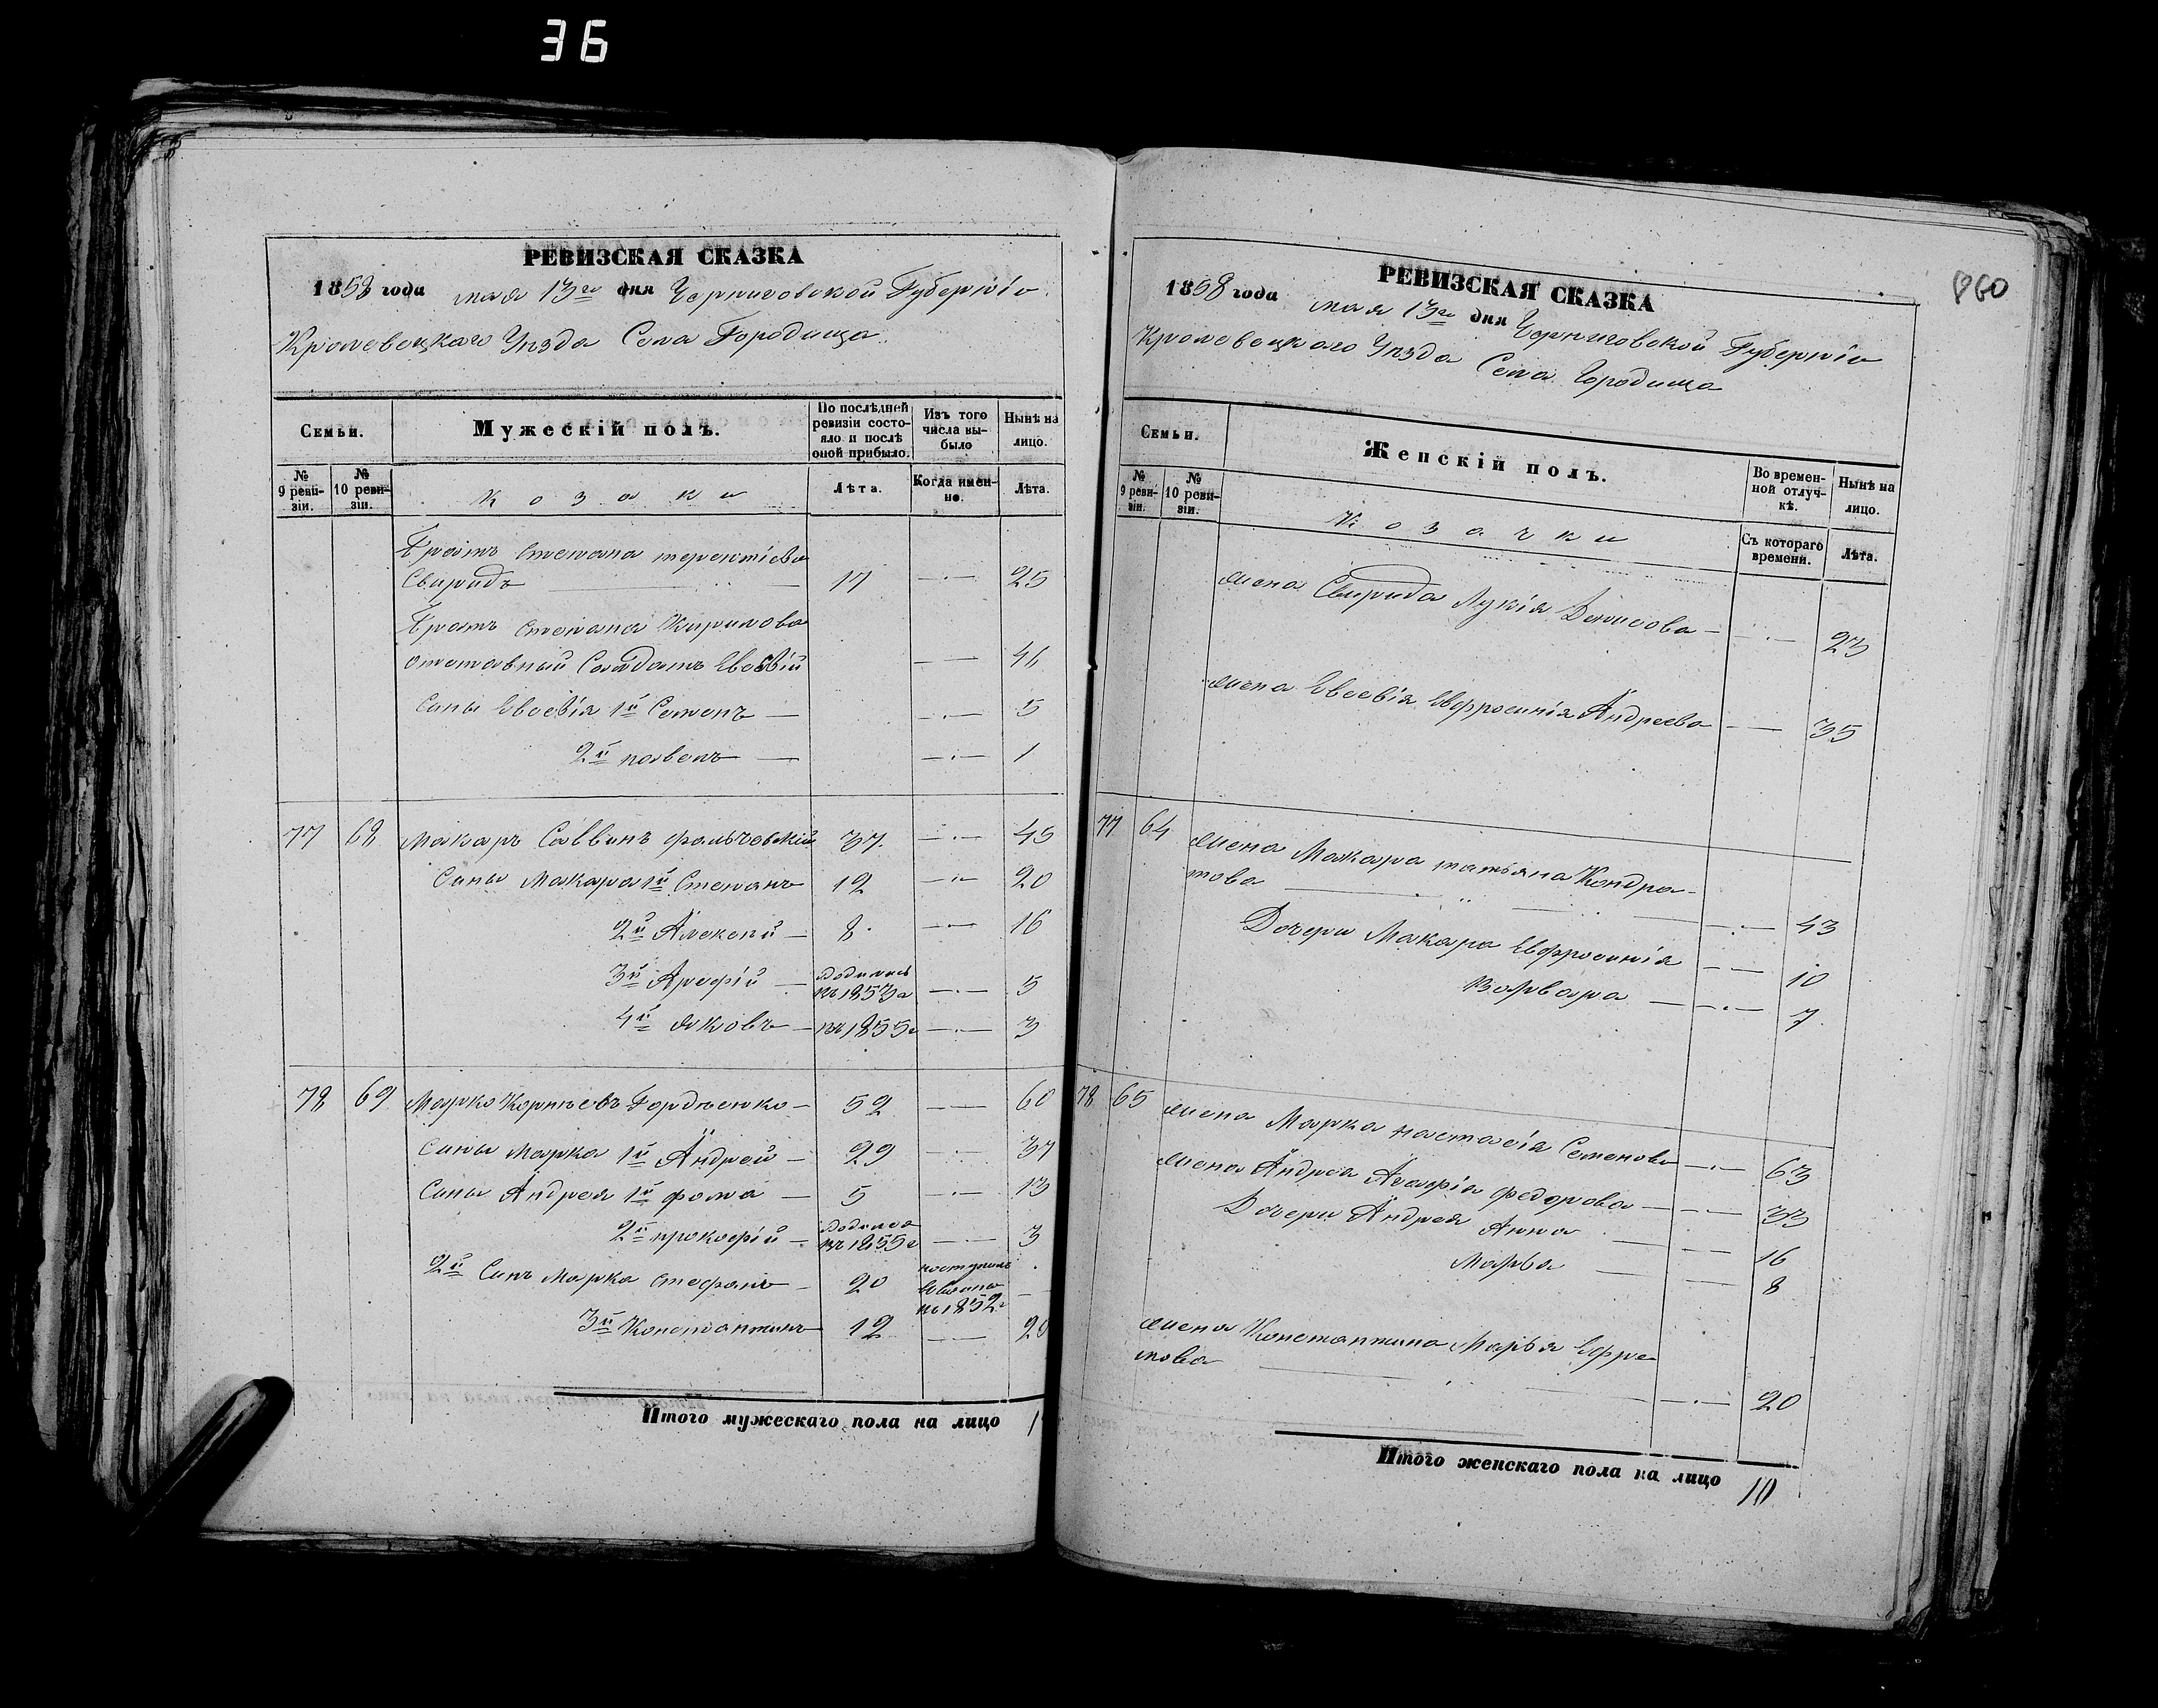 36
РЕВИЗСКАЯ СКАЗКА
1858 года мая 13го дня Черниговской Губерніи
Кролевецкаго Уѣзда Села Городища
Семьи.
Мужескій полъ.
По послѣдней ревизіи состояло и послѣ оной прибыло.
Изъ того числа выбыло
Нынѣ на лицо.
№ 9 ревизіи.
№ 10 ревизіи.
Козаки
Лѣта.
Когда именно.
Лѣта.
Братъ Степана терентіева
Свиридъ 17 25
Братъ Степана Кирилова
отставный Солдатъ Евсевій
Сыны Евсевія 1й Семенъ 5
2й павелъ 1
77 68 Макаръ Саввинъ 37. 45
Сыны Макара 1й Степанъ 12 20
2й Алексей 8 16
3й Арефій родился въ 1853г 5
4й яковъ въ 1855г 3
78 69 Марко Корнѣевъ Гордѣенко 52 60
Сыны Марка 1й Андрей 29 37
Сыны Андрея 1й фома 5 13
2й прокофій родился въ 1855г 3
2й Сынъ Марка стефанъ 20 поступилъ въ 1852г
3й Константинъ 12 20
Итого мужескаго пола на лицо
860
РЕВИЗСКАЯ СКАЗКА
1858 года мая 13го дня Черниговской Губерніи
Кролевецкаго Уѣзда Села Городища
Семьи.
Женскій полъ.
Во временной отлучкѣ.
Нынѣ на лицо.
№ 9 ревизіи.
№ 10 ревизіи.
Козачки
Съ котораго времени.
Лѣта.
жена Свирида Лукія Денисова 23
жена Евсевія Евфросинія Андреева 35
77 64 жена Макара татьяна Кондра-
това 43
Дочери Макара Евфросинія 10
варвара 7
78 65 жена Марка настасія Семенова 63
жена Андрея Агафія федорова 33
Дочери Андрея Анна 16
Марья 8
жена Константина Марья Ефре-
мова 20
Итого женскаго пола на лицо 10